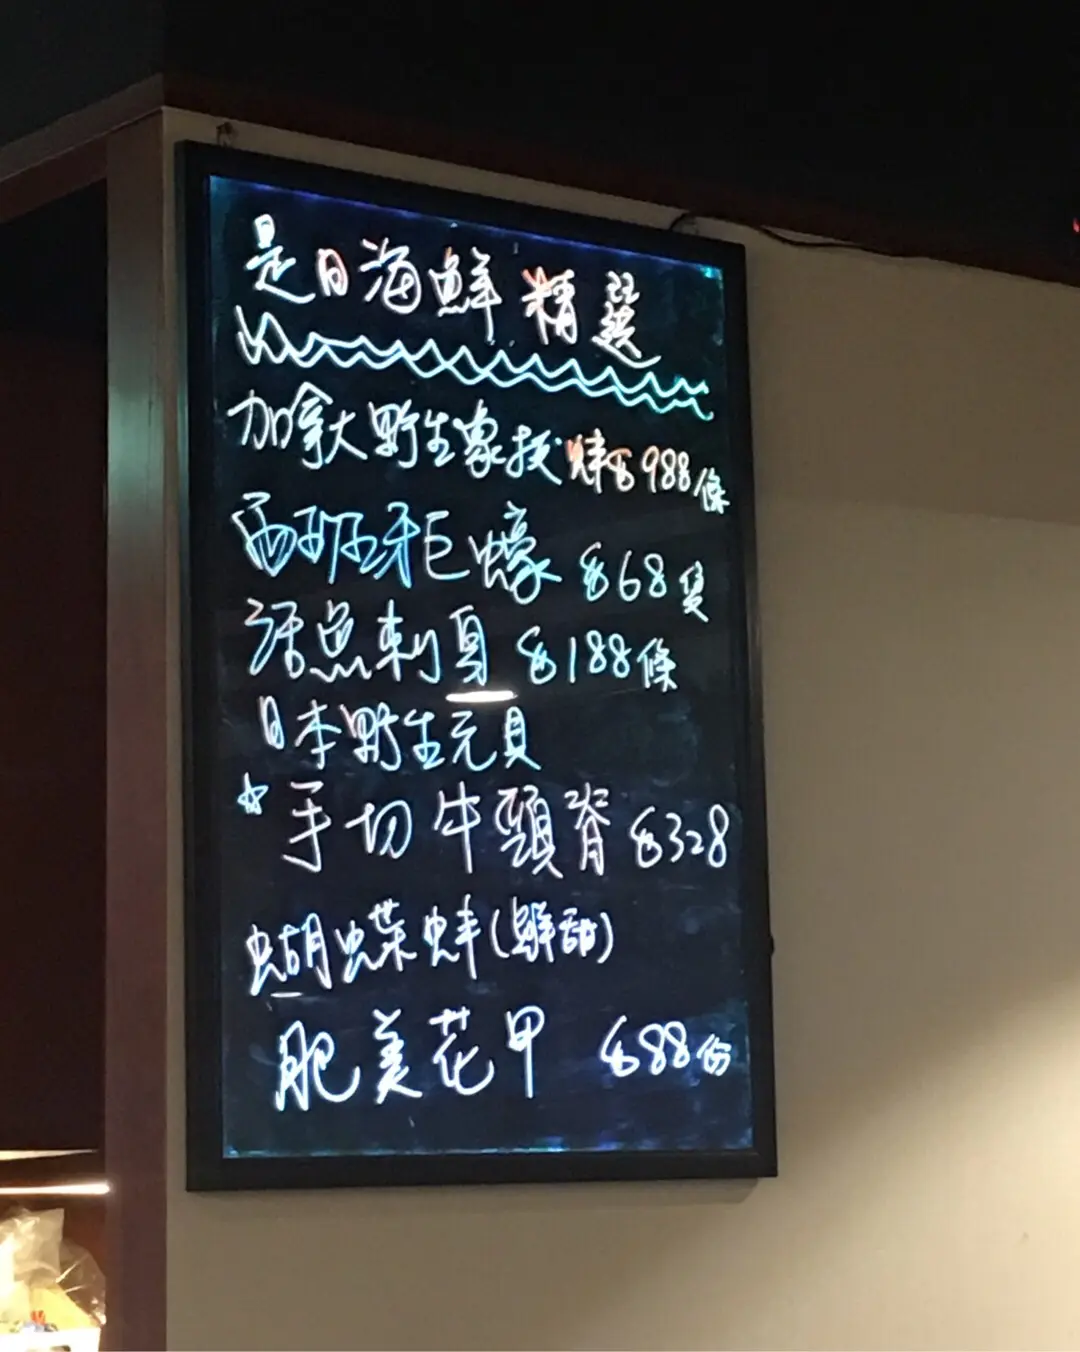 是日海鮮精選
加拿大野生象拔蚌$988條
西班牙巨蠔 $68隻
活魚刺身 $188條
日本野生元貝
☆手切牛頸脊 $328
蝴蝶蚌(鮮甜)
肥美花甲 $88份